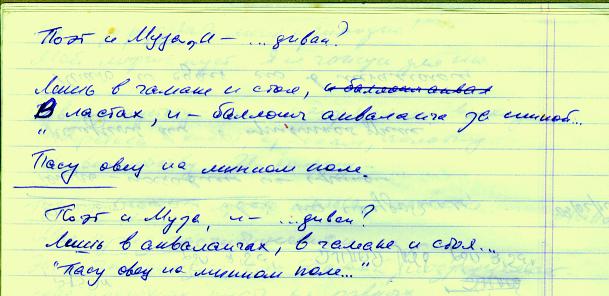 Поэт и Муза, и – ...диван?
Лишь в гамаке и стоя, и баллоны аквал
В ластах, и – баллоны акваланга за спиной...
"
Пасу овец на минном поле.
Поэт и Муза, и – ...диван?
Лишь в аквалангах, в гамаке и стоя...
"Пасу овец на минном поле..."